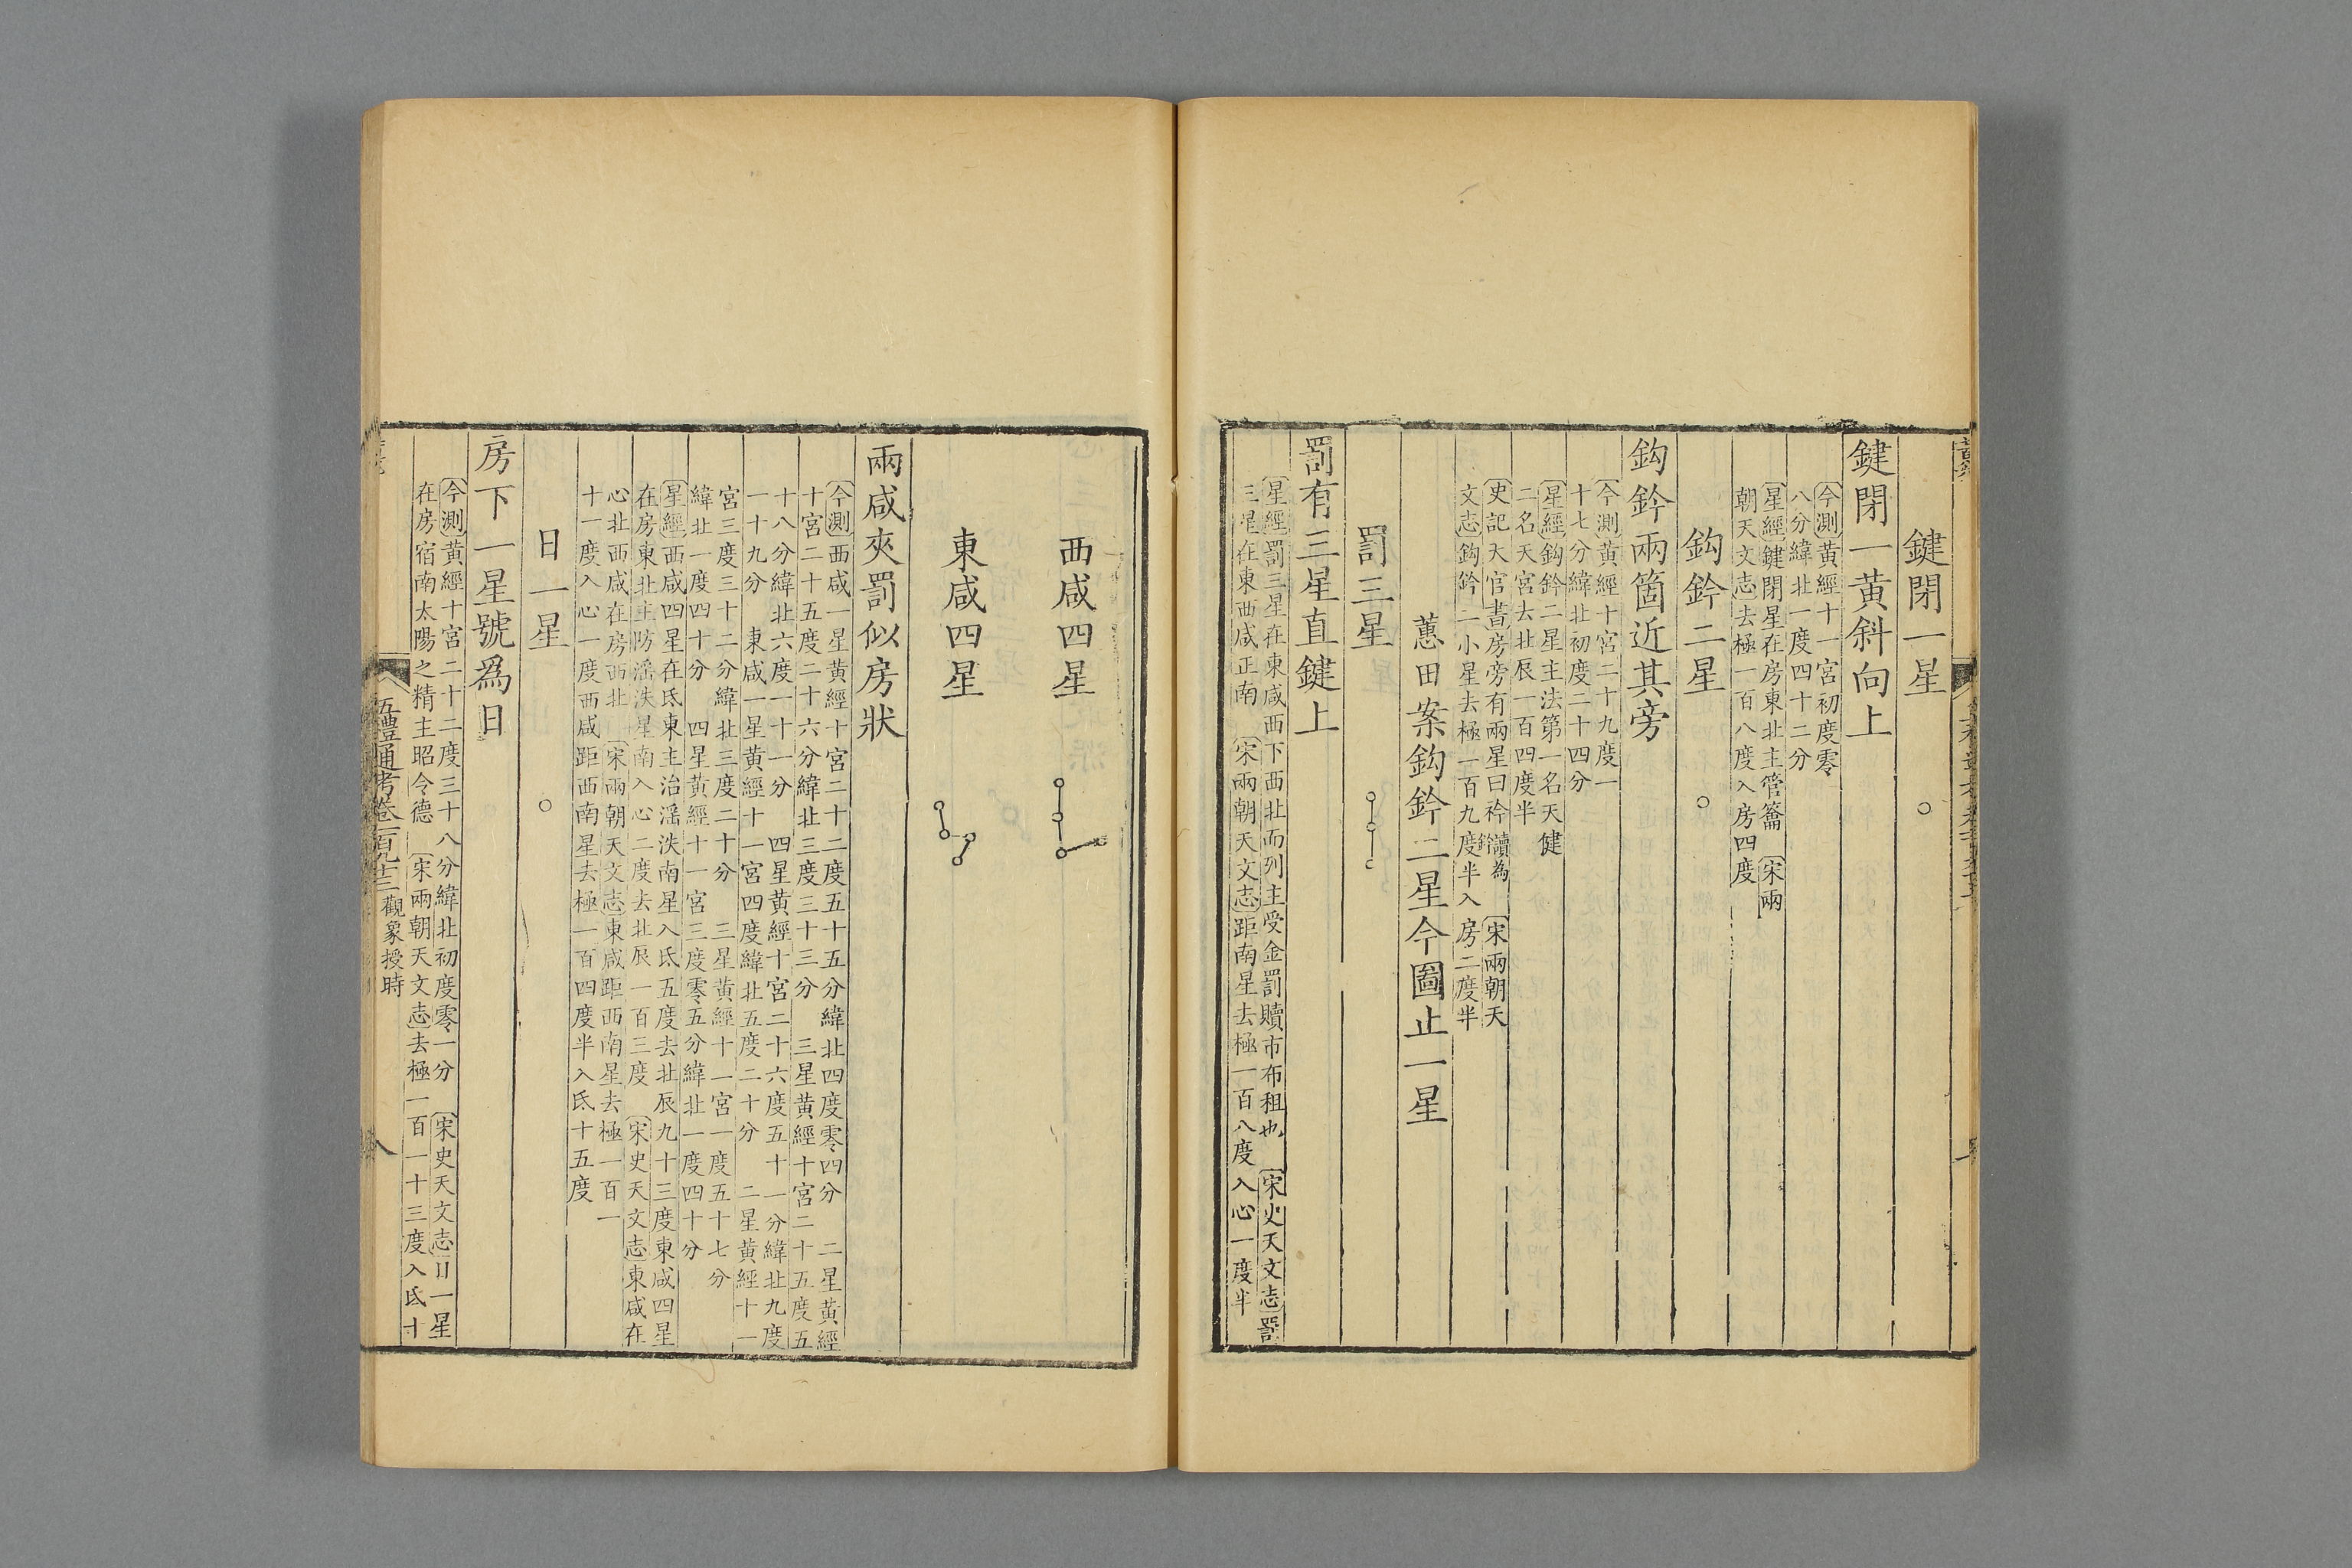 鍵閉一星
鍵閉一黃斜向上
今測黃經十一宮初度零
八分緯北一度四十二分
星經鍵閉星在房東北主管籥 宋兩
朝天文志去極一百八度入房四度
鈎鈐二星
鈎鈐兩箇近其旁
今測黃經十宮二十九度一
十七分緯北初度二十四分
星經鈎鈐二星主法第一名天健
二名天宮去北辰一百四度半
史記天官書房旁有兩星曰衿讀為鈐 宋兩朝天
文志鈎鈐二小星去極一百九度半入房二度半
蕙田案鈎鈐二星今圖止一星
罰三星
罰有三星直鍵上
星經罰三星在東咸西下西北而列主受金罰贖市布租也 宋史天文志罰
三星在東西咸正南 宋兩朝天文志距南星去極一百八度入心一度半
西咸四星
東咸四星
兩咸夾罰似房狀
今測西咸一星黃經十宮二十二度五十五分緯北四度零四分 二星黃經
十宮二十五度二十六分緯北三度三十三分 三星黃經十宮二十五度五
十八分緯北六度一十一分 四星黃經十宮二十六度五十一分緯北九度
一十九分 東咸一星黃經十一宮四度緯北五度二十分 二星黃經十一
宮三度三十二分緯北三度二十分 三星黃經十一宮一度五十七分
緯北一度四十分 四星黃經十一宮三度零五分緯北一度四十分
星經西咸四星在氐東主治滛泆南星入氐五度去北辰九十三度東咸四星
在房東北主防滛泆星南入心二度去北辰一百三度 宋史天文志東咸在
心北西咸在房西北 宋兩朝天文志東咸距西南星去極一百一
十一度入心一度西咸距西南星去極一百四度半入氐十五度
日一星
房下一星號為日
今測黃經十宮二十二度三十八分緯北初度零一分 宋史天文志日一星
在房宿南太陽之精主昭令德 宋兩朝天文志去極一百一十三度入氐十
五禮通考卷一百九十三 觀象授時
八